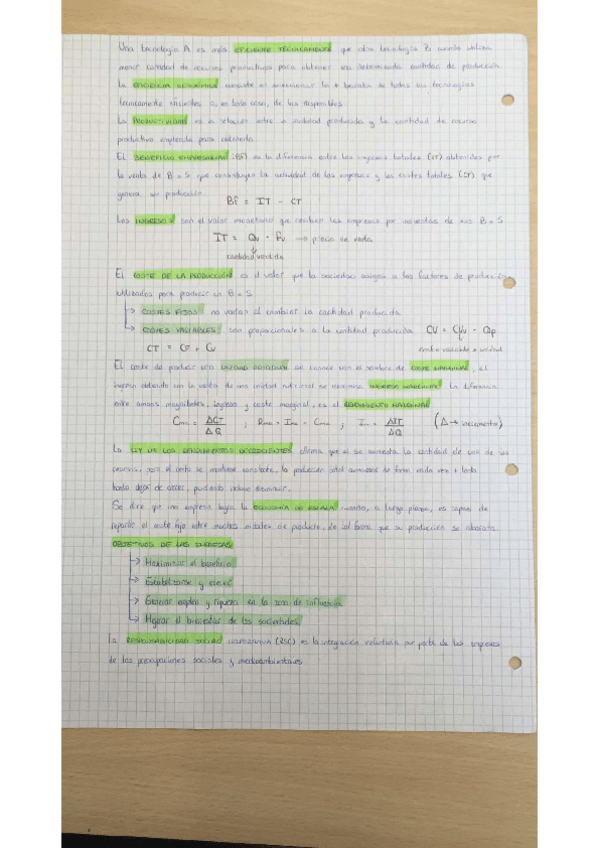 Una tecnología A es más EFICIENTE TÉCNICAMENTE que otra tecnología B, cuando utiliza
menor cantidad de recursos productivos para obtener una determinada cantidad de producción.
La EFICIENCIA ECONÓMICA consiste en seleccionar la + barata de todas las tecnologías
técnicamente eficientes o, en todo caso, de las disponibles.
La PRODUCTIVIDAD es la relación entre la cantidad producida y la cantidad de recurso
productivo empleada para obtenerla.
El BENEFICIO EMPRESARIAL (BE) es la diferencia entre los ingresos totales (IT) obtenidos por
la venta de B = S que constituyen la actividad de las empresas y los costes totales (CT) que
genera su producción.
BE = IT - CT
Los INGRESOS son el valor monetario que reciben las empresas por las ventas de sus B = S
IT = Qv · Pv → precio de venta
cantidad vendida
El COSTE DE LA PRODUCCIÓN es el valor que la sociedad asigna a los factores de producción
utilizados para producir un B = S.
→ COSTES FIJOS: no varían al cambiar la cantidad producida
→ COSTES VARIABLES: son proporcionales a la cantidad producida CV = CVu · Qp
CT = CF + CV coste variable x unidad
El coste de producir una UNIDAD ADICIONAL se conoce con el nombre de COSTE MARGINAL, el
ingreso obtenido con la venta de una unidad adicional se denomina INGRESO MARGINAL. La diferencia
entre ambas magnitudes, ingreso y coste marginal, es el RENDIMIENTO MARGINAL
Cma = ΔCT / ΔQ ; Rma = Ima - Cma ; Ima = ΔIT / ΔQ (Δ → incremento)
La LEY DE LOS RENDIMIENTOS DECRECIENTES afirma que si se aumenta la cantidad de uno de los
recursos, pero el resto se mantiene constante, la producción total aumentará de forma cada vez + lenta
hasta dejar de crecer, pudiendo incluso disminuir.
Se dice que una empresa logra la ECONOMÍA DE ESCALA cuando, a largo plazo, es capaz de
repartir el coste fijo entre muchas unidades de producto, de tal forma que su producción se abarata.
OBJETIVOS DE LAS EMPRESAS
→ Maximizar el beneficio
→ Estabilizarse y crecer
→ Generar empleo y riqueza en la zona de influencia
→ Mejorar el bienestar de las sociedades
La RESPONSABILIDAD SOCIAL CORPORATIVA (RSC) es la integración voluntaria por parte de las empresas
de las preocupaciones sociales y medioambientales